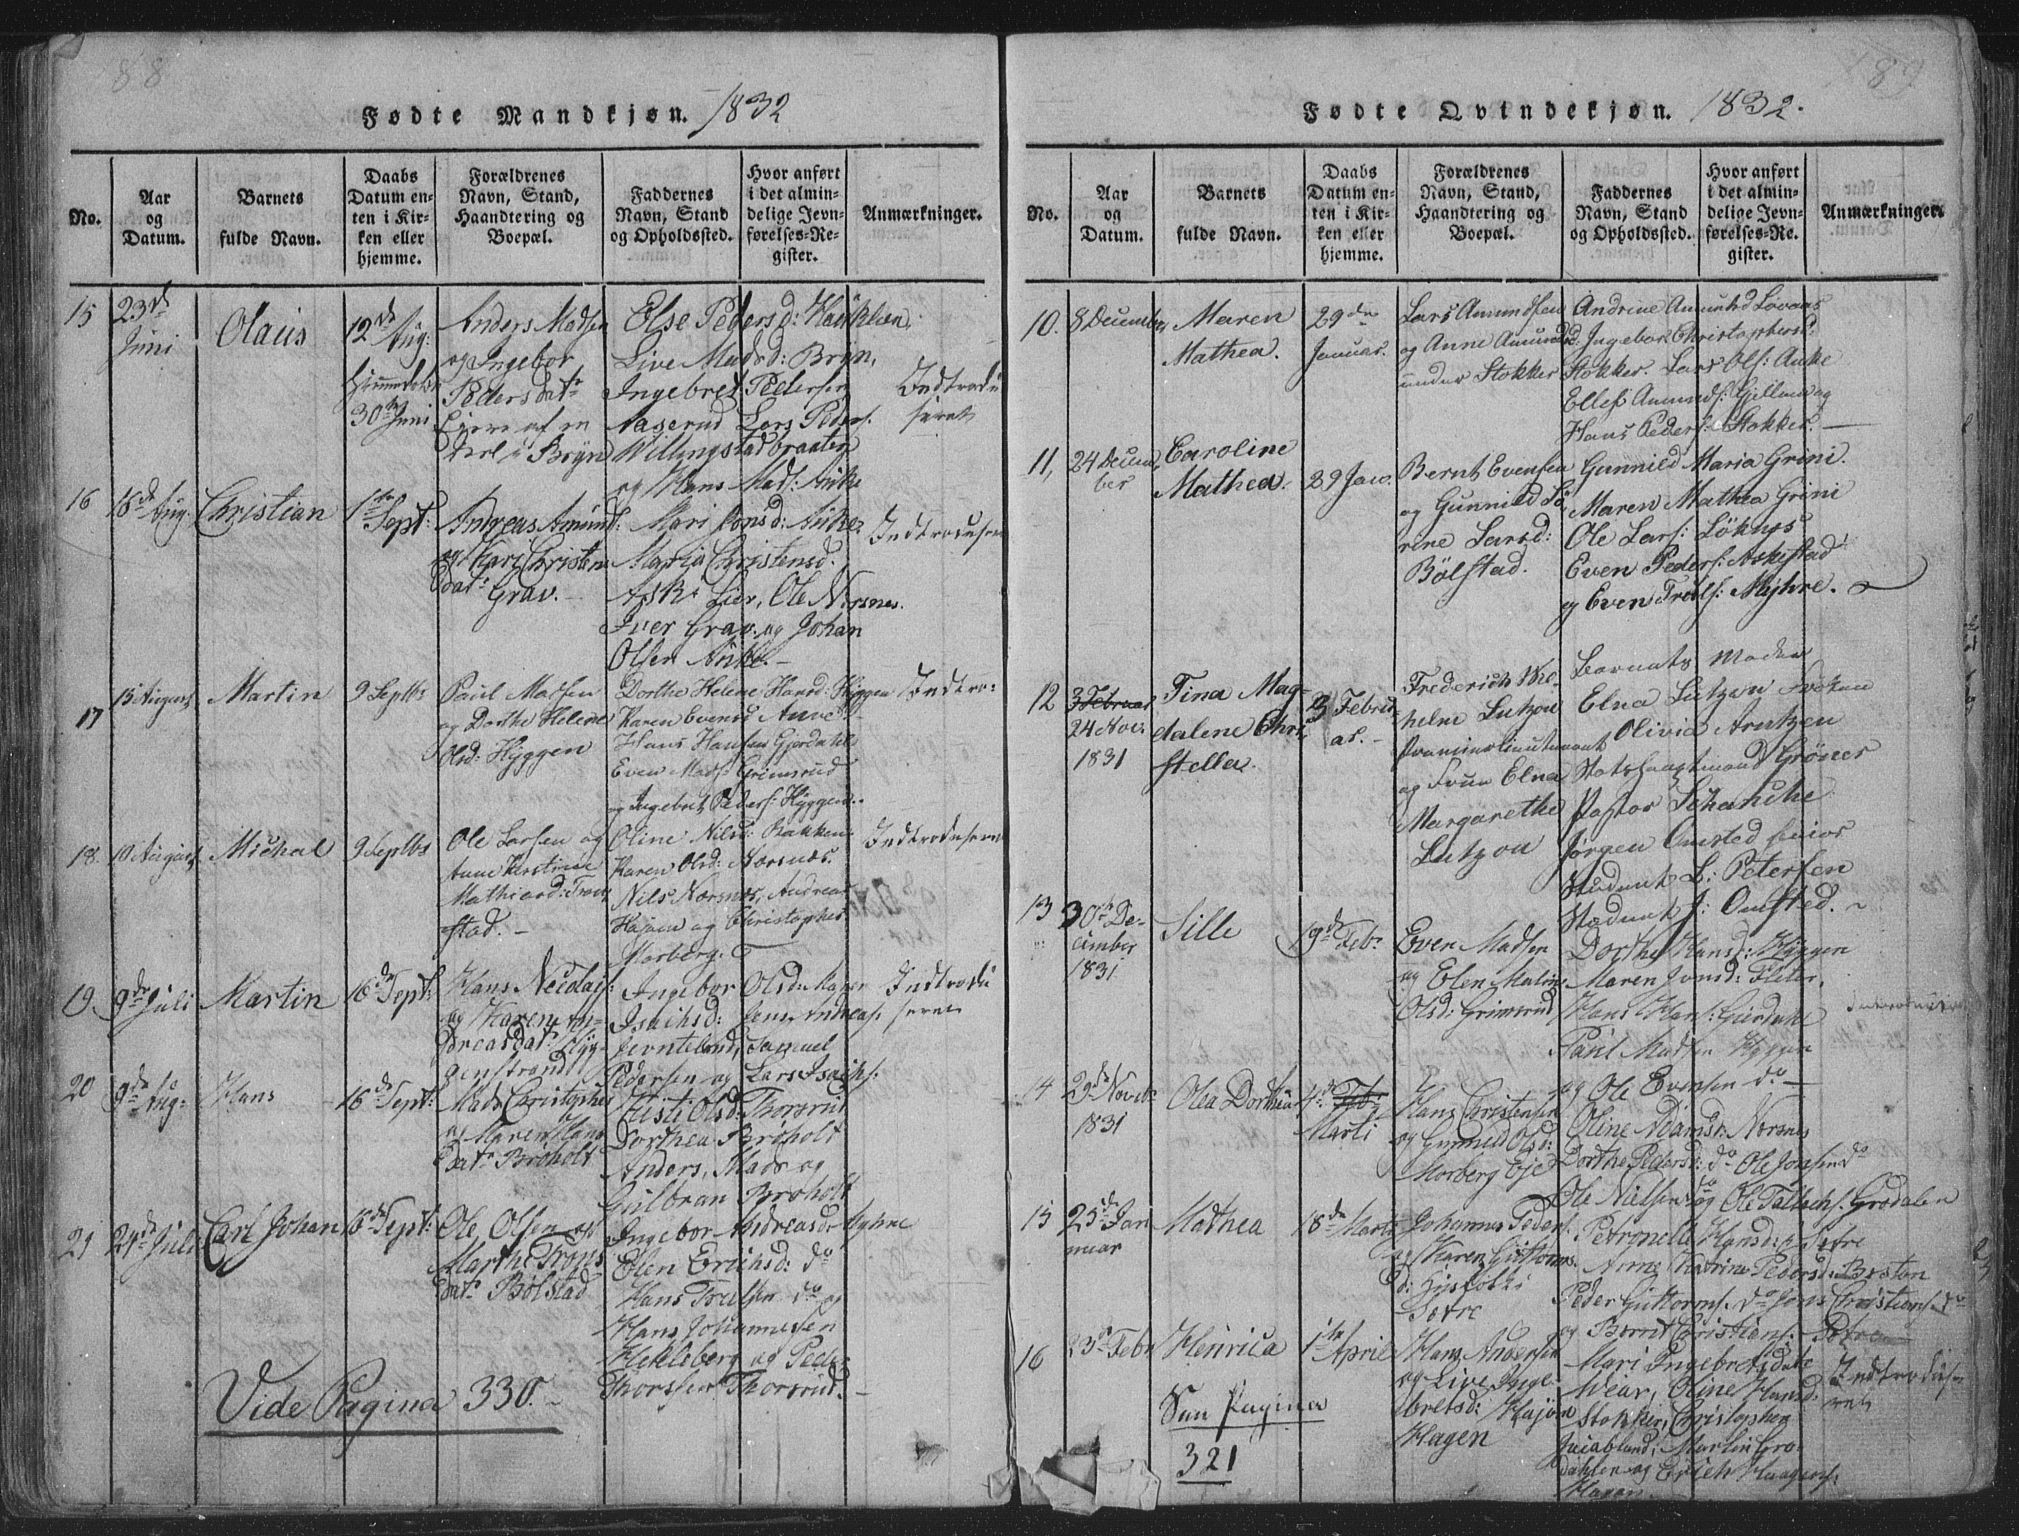 88
Fødte Mandkjøn. 1832
No.
Aar og Datum.
Barnets fulde Navn.
Daabs Datum enten i Kirken eller hjemme.
Forældrenes Navn, Stand, Haandtering og Boepæl.
Faddernes Navn, Stand og Opholdssted.
Hvor anført i det almindelige Jevnførelses-Register.
Anmærkninger.
15
23de Juni
Olaus
12de Aug:
30te Juni
Anders Madsen
og Ingebor
Pedersdatr
Eiere af en
Deel i Bryn
Else Pedersd:
Live Madsd: Bryn,
Ingebret Pedersen
Aaserud Lars Peders:
Willingstadbraaten
og Hans Mads: Auke
Indtrodu
seret
16
18de Aug:
Christian
1te Sept:
Andreas Amund:
og Kari Christens
datr Grav.
Mari Jonsd: Auke
Maria Christensd.
Ask: Lier, Ole Nersnes.
Iver Grav: og Johan
Olsen Auke.
Indtroduseret
17
15 August
Martin
9 Septbr
Paul Madsen
og Dorthe Helene
Olsd: Hyggen
Dorthe Helene Hansd: Hyggen
Karen Evensd
Hans Hansen Gjerdahl
Even Mads: Grimsrud
og Ingebret Peders: Hyggen
Indtro-
18.
10 August
Michal
9 Septbr
Ole Larsen og
Anne Kirstine
Mathisd:
stad.
Oline Nilsd: Bakken
Karen Olsd: Næsnæs.
Nils Næsnæs, Andreas
Hajem og Christopher
Morberg.
Indtroduseret
19.
9de Juli
Martin
16de Sept:
Hans Nicolais:
og Karen An-
dreasdatr Hyg-
genstrand
Ingebor Olsd:
Isachsd: Andreas:
Jernteland, Samuel
Pedersen og Lars Isachs:
Indtrodu
seret
20
9de Aug:
Hans
16de Sept:
Mads Christopher
og Maren Hans
datr Broholt
Kisti Olsd: Thorsrud
Dorthea Broholt
Anders, Mads og
Gulbran Broholt
21
24de Juli
Carl Johan
16de Sept:
Ole Olsen og
Marthe Troels
datr Bølstad
Ingebor Andreasdr Myhre
Elen Erichsd: do
Hans Troelsen do og
Hans Johannesen
Hekleberg og Peder
Thorssen Thorsrud.
Vide Pagina 330.
189
Fødte Qvindekjøn. 1832.
No.
Aar og Datum.
Barnets fulde Navn.
Daabs Datum enten i Kirken eller hjemme.
Forældrenes Navn, Stand, Haandtering og Boepæl.
Faddernes Navn, Stand og Opholdssted.
Hvor anført i det almindelige Jevnførelses-Register.
Anmærkninger.
10.
8 December
Maren
Mathea.
29de
Januar.
Lars Amundsen
og Anne Amunds
under Stokker
Andrine Amundsd Lovaas
Ingebor Christophersd:
Stokker. Lars Ols: Auke
Ellef Amunds: Gjellum og
Hans Peders: Stokker.
11,
24 Decem
ber
Caroline
Mathea.
29 Jan.
Bernt Evensen
og Gunnild So
rine Larsd:
Bölstad.
Gunnild Maria Grini.
Maren Mathea Grini
Ole Lars: Løknæs
Even Peders: Askestad
og Even Troels: Myhre.
12
3 Februar
24 Nov.
1831
Tina Mag-
dalene Chri
stella.
3 Febru
ar.
Frederich Wil-
helm Lutzou
Premierlieutenant
og Frue Elna
Margarethe
Lutzou
Barnets Moder
Elna Lutzou Frøken
Olivia Arntzen
Pastor Schanche
Jørgen Omsted
Student L: Petersen
Student J: Omsted.
13
30te De-
cember
1831.
Sille
19de Febr
Even Madsen
og Elen Malin
Olsd: Grimsrud
Dorthe Hansd: Hyggen
Maren Jonsd:
Hans Hans: Gjerdale
Paul Madsen Hyggen
og Ole Evensen do
Introduseret
4
29de Novbr
1831
Olea Dorthea
4de Feb:
Marti
Hans Christensen
og Gunnild Olsd:
Morberg Eje
Oline Adamsr: Nersnes
Dorthe Pedersd: do Ole Jonsen do
Ole Nielsen do og Ole Tallachs: Grødalen
15
25de Jan
nuar
Mathea
18de Marti
Johannes Peders:
og Karen Guttorms
d:
Sætre
Petronelle Hansd: Sætre
Anne Katrine Pedersd: Breton
Peder Guttorms: do Jens Christians: do
og Bernt Christians:
16
23de Febr
Henrica
1te April
Hans Andersen
og Live Inge-
bretsd: Hajem
Hagen
Mari Ingebretsdatr
Wear, Oline Hansd:
Stokker, Christopher
Martin Grø-
dahlen og Erich Haagens:
Hagen.
Indtroduse
ret
Sun Pagina
321